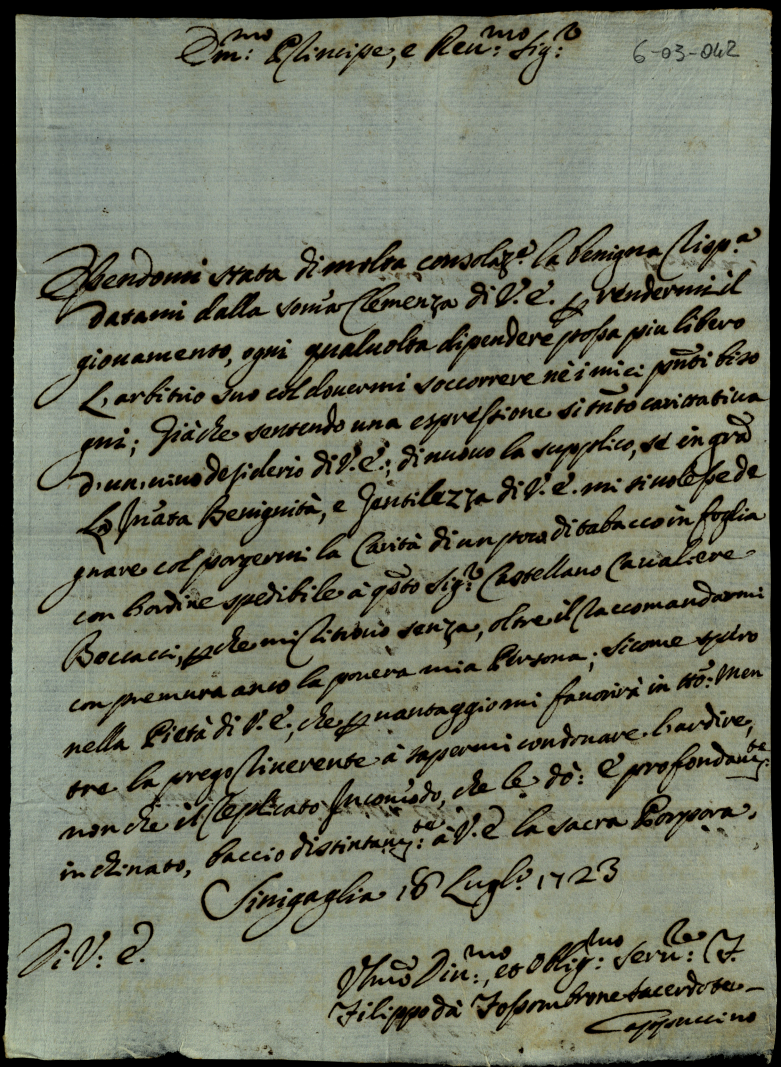 Em:mo Principe, e Reu:mo Sig:r
6-03-042
Essendomi stata di molta consolaz:e la benigna Risp:a
datami dalla som̃a Clemenza di V. E. p rendermi il
giouamento, ogni qualuolta dipendere possa piu libero
L'arbitrio suo col douermi soccorrere ne i miei pñti biso
gni; Giache sentendo una espressione si tñto caritatiua
d'un uiuo desiderio di V. E.; di nuouo la supplico, se in grã
La Iñata Benignità, e Gentilezza di V. E. mi si uolesse de
gnare col porgermi la Carità di un poco di tabacco in foglia
con l'ordine spedibile à qũto Sig:r Castellano Caualiere
Boccacci, pche mi ritrouo senza, oltre il raccomandarmi
con premura anco la pouera mia Persona; sicome spero
nella Pietà di V. E., che p uantaggio mi fauorirà in ttõ: Men
tre la prego riuerente à sapermi condonare l'ardire,
non che il replicato Incom̃odo, che le dò: E profondam:te
inchinato, baccio distintam:te à V. E. la sacra Porpora.
Sinigaglia 18 Lugl:o 1723
Di V: E.
Vm̃o Diu:mo, et Oblig:mo seru:re F.
Filippo da Fossombrone sacerdote
Cappuccino